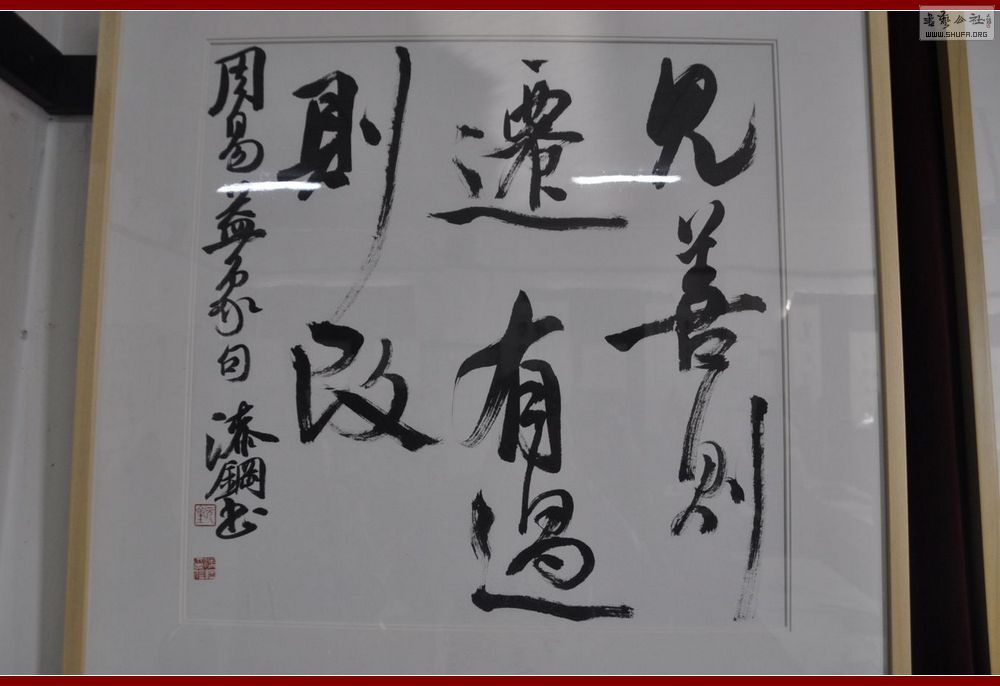 見善則
遷有過
則改
周易益象句 漆鋼書
書藝公社
WWW.SHUFA.ORG